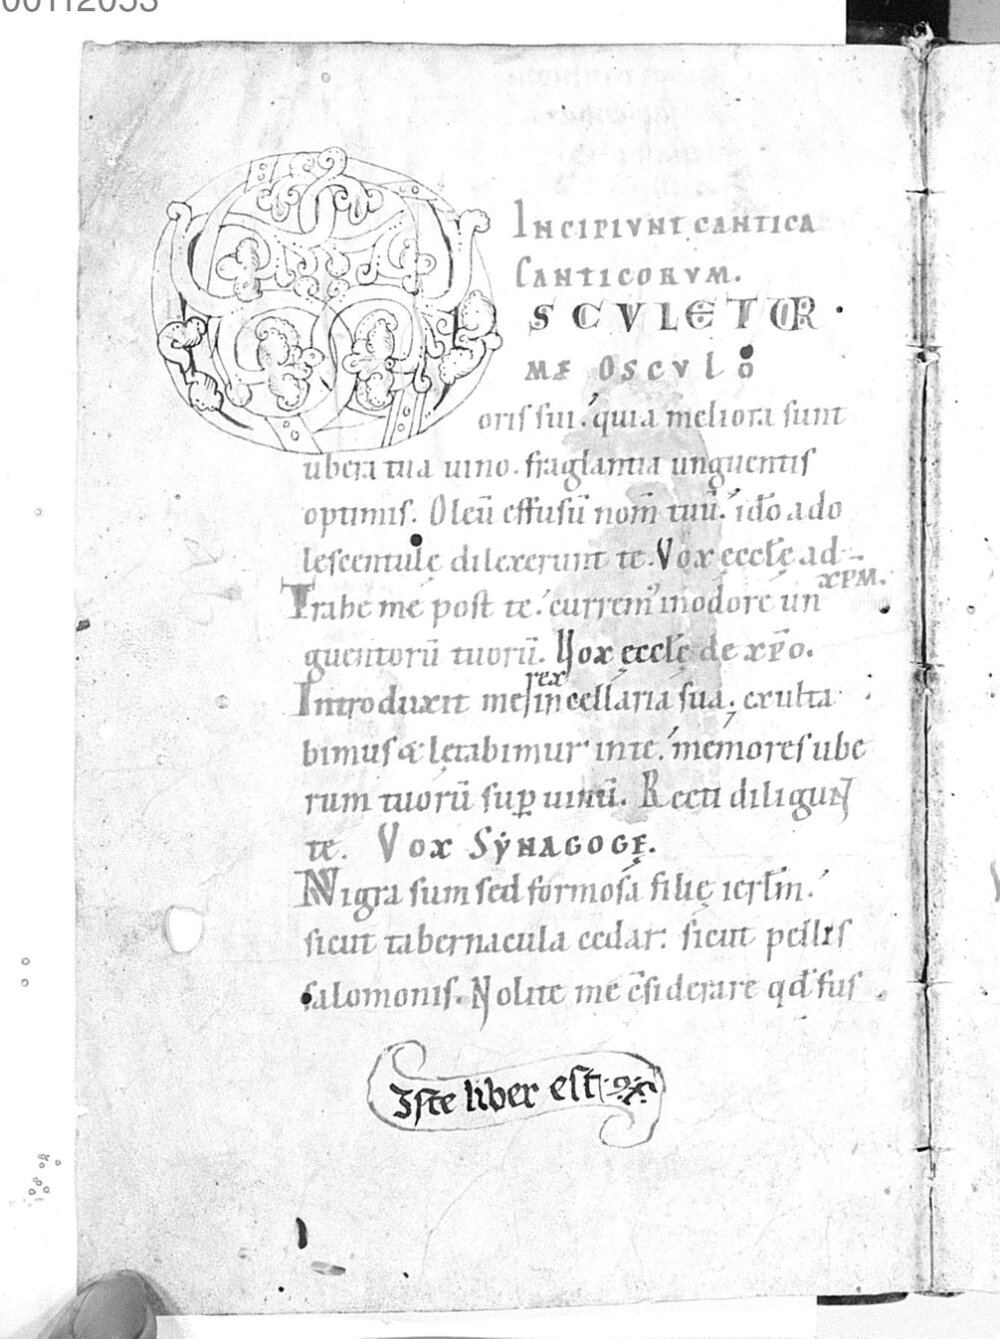 00112053
INCIPIVNT CANTICA
CANTICORVM.
OSCVLETUR
ME OSCVLO
oris sui. quia meliora sunt
ubera tua uino. fraglantia unguentis
optimis. Oleū effusū nom̄ tuū. ido ado
lescentulę dilexerunt te. Vox ęcclę ad
XPM.
Trahe me post te. currem' in odore un
guentorū tuorū. Vox ęcclę de xp̄o.
rex
Introduxit me in cellaria sua. exulta
bimus & lętabimur in te. memores ube
rum tuorū sup uinū. Recti diligunt
te. Vox SYNAGOGĘ.
Nigra sum sed formosa filię ierlm̄.
sicut tabernacula cedar. sicut pellis
salomonis. Nolite me c̄siderare qd fus
Iste liber est